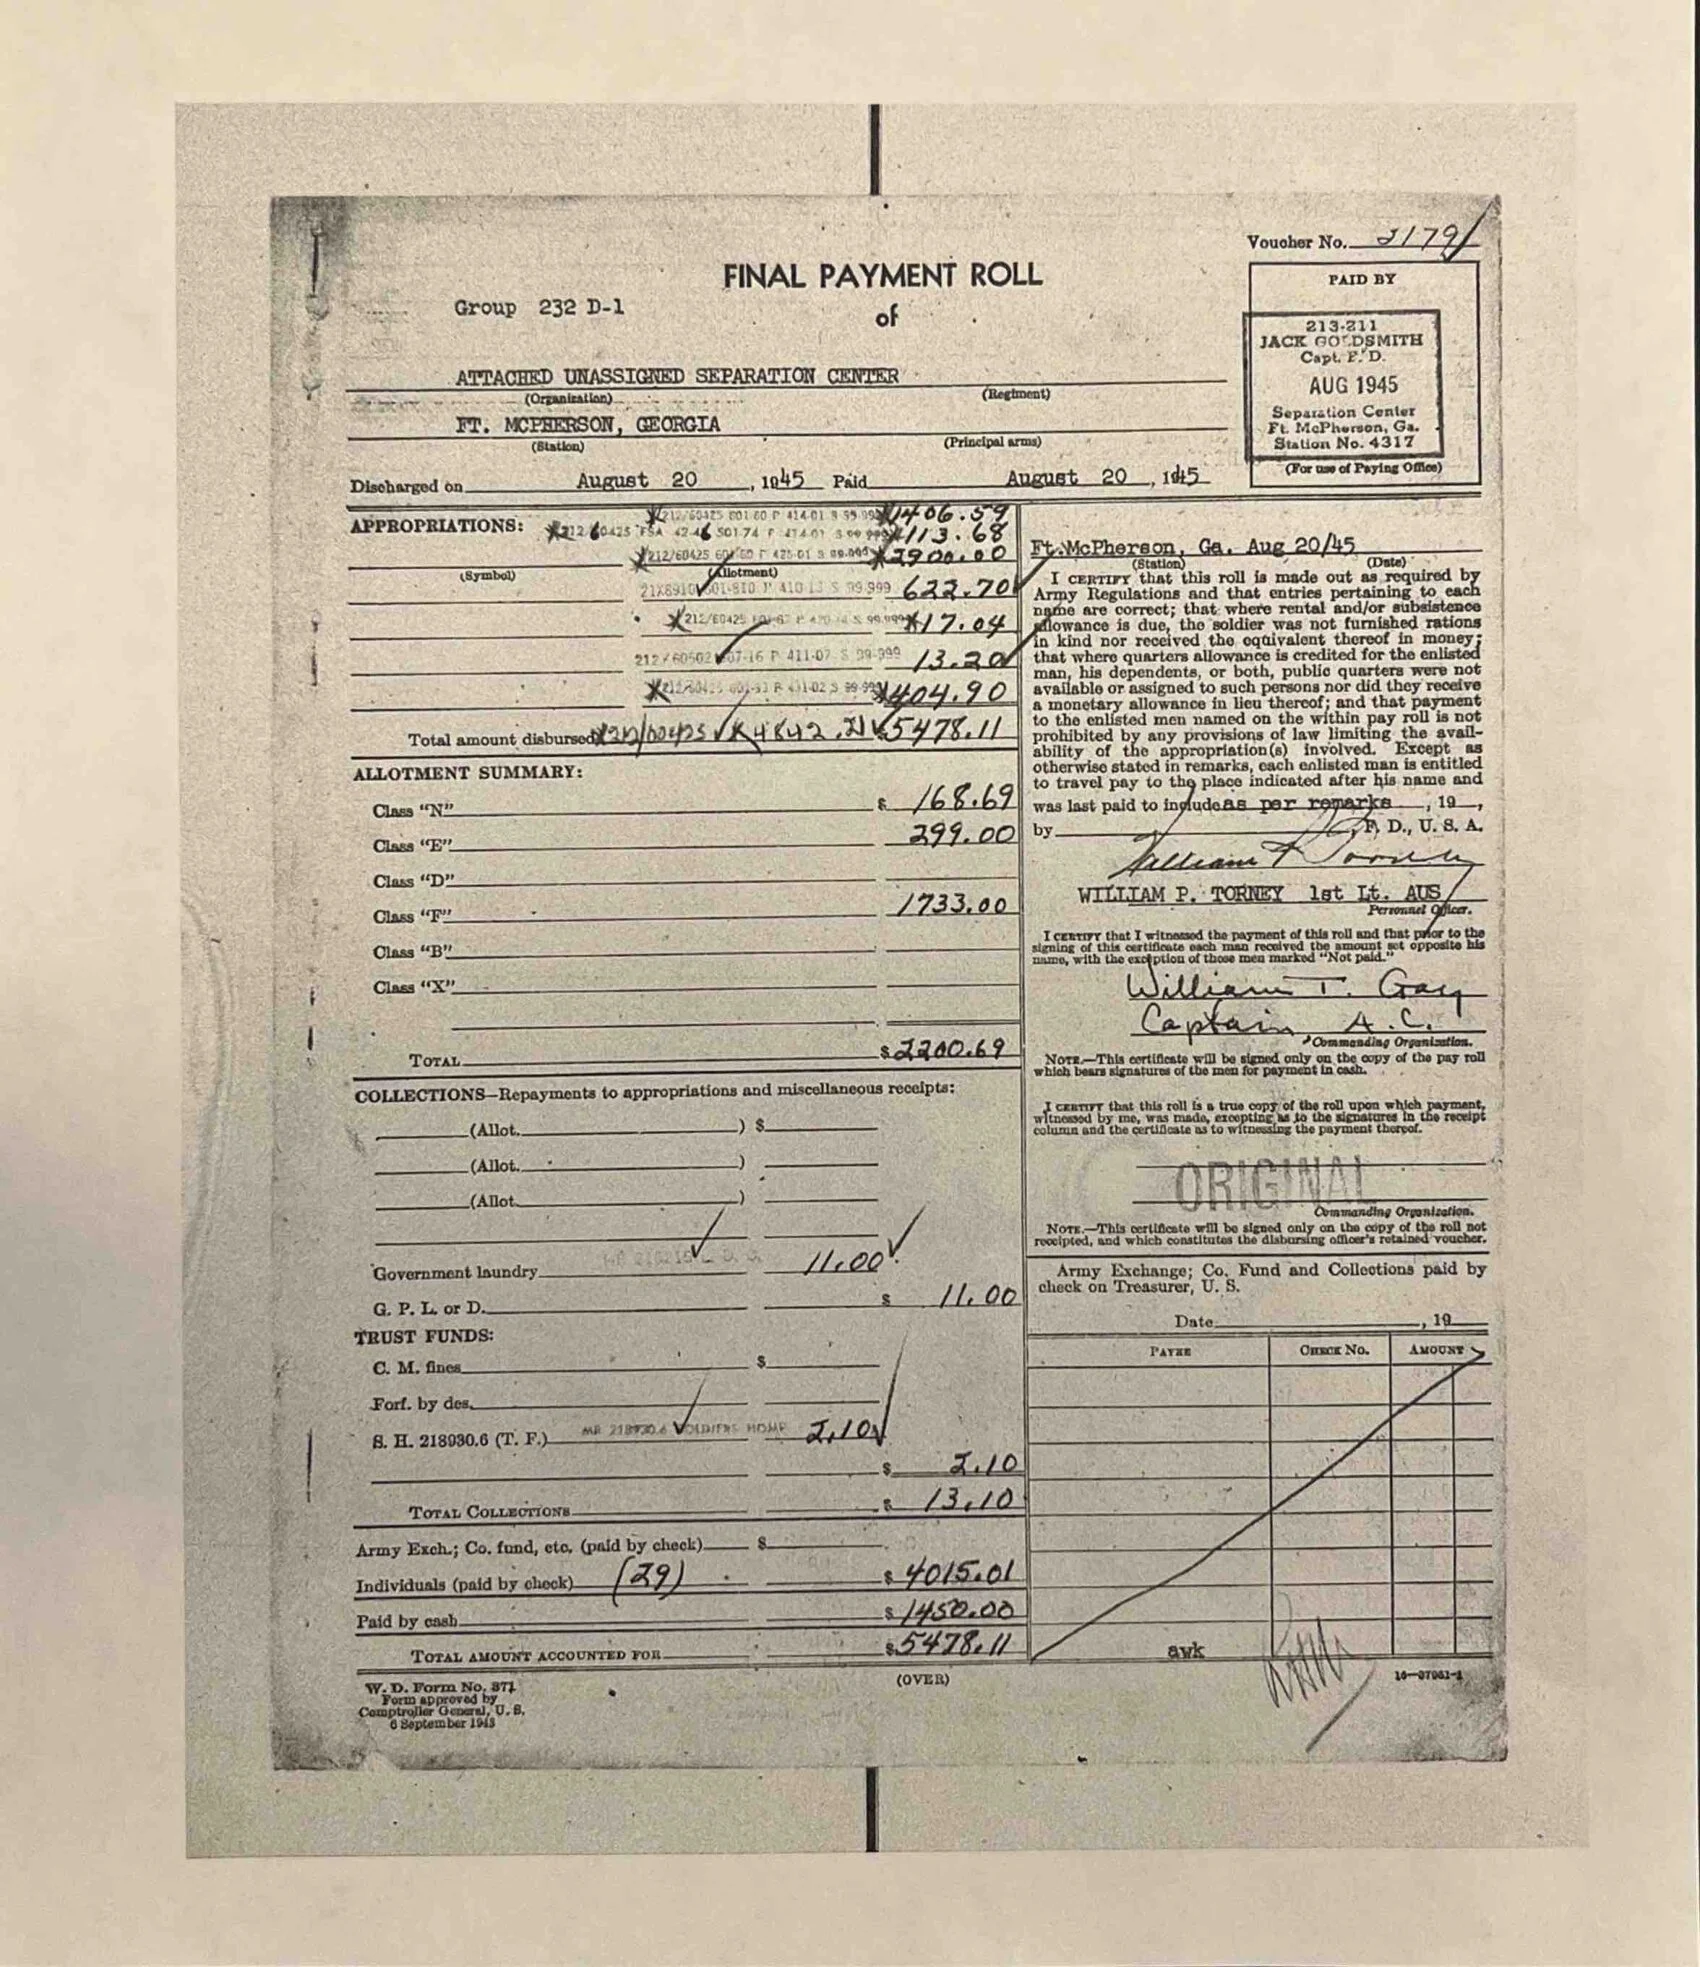 Voucher No. 3179
FINAL PAYMENT ROLL
of
Group 232 D-1
PAID BY
213-211
JACK GOLDSMITH
Capt. F. D.
AUG 1945
Separation Center
Ft. McPherson, Ga.
Station No. 4317
(For use of Paying Office)
ATTACHED UNASSIGNED SEPARATION CENTER
(Organization) (Regiment)
FT. MCPHERSON, GEORGIA
(Station) (Principal arms)
Discharged on August 20, 1945 Paid August 20, 1945
APPROPRIATIONS:
1406.59
113.68
2900.00
(Symbol) (Allotment)
622.70
17.04
13.20
404.90
Total amount disbursed 4842.21 5478.11
ALLOTMENT SUMMARY:
Class "N" $ 168.69
Class "E" 299.00
Class "D"
Class "F" 1733.00
Class "B"
Class "X"
TOTAL $2200.69
COLLECTIONS—Repayments to appropriations and miscellaneous receipts:
(Allot. ) $
(Allot. )
(Allot. )
Government laundry 11.00
G. P. L. or D. $ 11.00
TRUST FUNDS:
C. M. fines $
Forf. by des.
S. H. 218930.6 (T. F.) MR 218930.6 SOLDIERS HOME 2.10
$ 2.10
TOTAL COLLECTIONS $ 13.10
Army Exch.; Co. fund, etc. (paid by check) $
Individuals (paid by check) (29) $ 4015.01
Paid by cash $ 1450.00
TOTAL AMOUNT ACCOUNTED FOR $5478.11
W. D. Form No. 371
Form approved by
Comptroller General, U. S.
6 September 1943
(OVER)
Ft. McPherson, Ga. Aug 20/45
(Station) (Date)
I CERTIFY that this roll is made out as required by
Army Regulations and that entries pertaining to each
name are correct; that where rental and/or subsistence
allowance is due, the soldier was not furnished rations
in kind nor received the equivalent thereof in money;
that where quarters allowance is credited for the enlisted
man, his dependents, or both, public quarters were not
available or assigned to such persons nor did they receive
a monetary allowance in lieu thereof; and that payment
to the enlisted men named on the within pay roll is not
prohibited by any provisions of law limiting the avail-
ability of the appropriation(s) involved. Except as
otherwise stated in remarks, each enlisted man is entitled
to travel pay to the place indicated after his name and
was last paid to include as per remarks, 19 ,
by , F. D., U. S. A.
WILLIAM P. TORNEY 1st Lt. AUS
Personnel Officer.
I CERTIFY that I witnessed the payment of this roll and that prior to the
signing of this certificate each man received the amount set opposite his
name, with the exception of those men marked "Not paid."
William T. Gay
Captain, A.C.
Commanding Organization.
NOTE.—This certificate will be signed only on the copy of the pay roll
which bears signatures of the men for payment in cash.
I CERTIFY that this roll is a true copy of the roll upon which payment,
witnessed by me, was made, excepting as to the signatures in the receipt
column and the certificate as to witnessing the payment thereof.
ORIGINAL
Commanding Organization.
NOTE.—This certificate will be signed only on the copy of the roll not
receipted, and which constitutes the disbursing officer's retained voucher.
Army Exchange; Co. Fund and Collections paid by
check on Treasurer, U. S.
Date , 19
PAYEE CHECK NO. AMOUNT
awk